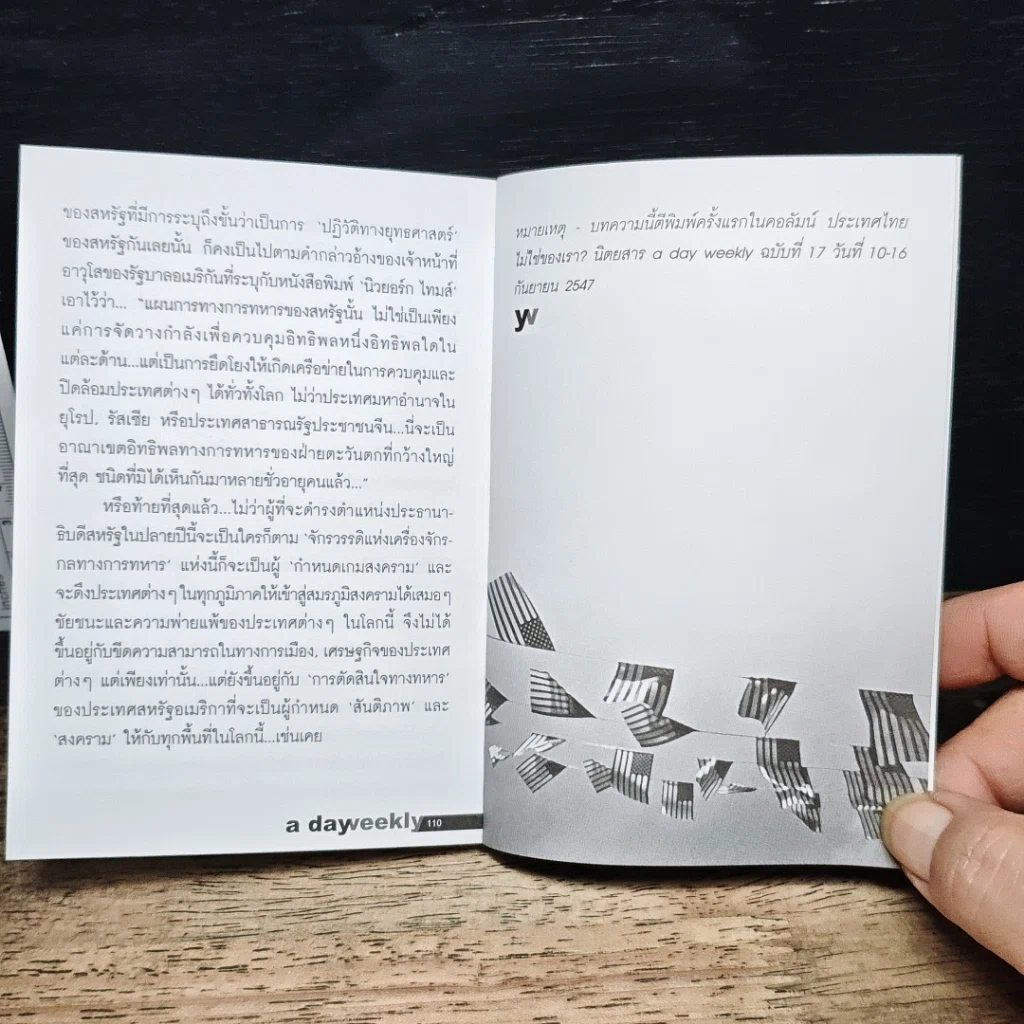 ของสหรัฐที่มีการระบุถึงขั้นว่าเป็นการ ‘ปฏิวัติทางยุทธศาสตร์’
ของสหรัฐกันเลยนั้น ก็คงเป็นไปตามคำกล่าวอ้างของเจ้าหน้าที่
อาวุโสของรัฐบาลอเมริกันที่ระบุกับหนังสือพิมพ์ ‘นิวยอร์ก ไทมส์’
เอาไว้ว่า... “แผนการทางการทหารของสหรัฐนั้น ไม่ใช่เป็นเพียง
แค่การจัดวางกำลังเพื่อควบคุมอิทธิพลหนึ่งอิทธิพลใดใน
แต่ละด้าน...แต่เป็นการยึดโยงให้เกิดเครือข่ายในการควบคุมและ
ปิดล้อมประเทศต่างๆ ได้ทั่วทั้งโลก ไม่ว่าประเทศมหาอำนาจใน
ยุโรป, รัสเซีย หรือประเทศสาธารณรัฐประชาชนจีน...นี่จะเป็น
อาณาเขตอิทธิพลทางการทหารของฝ่ายตะวันตกที่กว้างใหญ่
ที่สุด ชนิดที่มิได้เห็นกันมาหลายชั่วอายุคนแล้ว...”
หรือท้ายที่สุดแล้ว...ไม่ว่าผู้ที่จะดำรงตำแหน่งประธานา-
ธิบดีสหรัฐในปลายปีนี้จะเป็นใครก็ตาม ‘จักรวรรดิแห่งเครื่องจักร-
กลทางการทหาร’ แห่งนี้ก็จะเป็นผู้ ‘กำหนดเกมสงคราม’ และ
จะดึงประเทศต่างๆ ในทุกภูมิภาคให้เข้าสู่สมรภูมิสงครามได้เสมอๆ
ชัยชนะและความพ่ายแพ้ของประเทศต่างๆ ในโลกนี้ จึงไม่ได้
ขึ้นอยู่กับขีดความสามารถในทางการเมือง, เศรษฐกิจของประเทศ
ต่างๆ แต่เพียงเท่านั้น...แต่ยังขึ้นอยู่กับ ‘การตัดสินใจทางทหาร’
ของประเทศสหรัฐอเมริกาที่จะเป็นผู้กำหนด ‘สันติภาพ’ และ
‘สงคราม’ ให้กับทุกพื้นที่ในโลกนี้...เช่นเคย
a dayweekly 110
หมายเหตุ - บทความนี้ตีพิมพ์ครั้งแรกในคอลัมน์ ประเทศไทย
ไม่ใช่ของเรา? นิตยสาร a day weekly ฉบับที่ 17 วันที่ 10-16
กันยายน 2547
yw